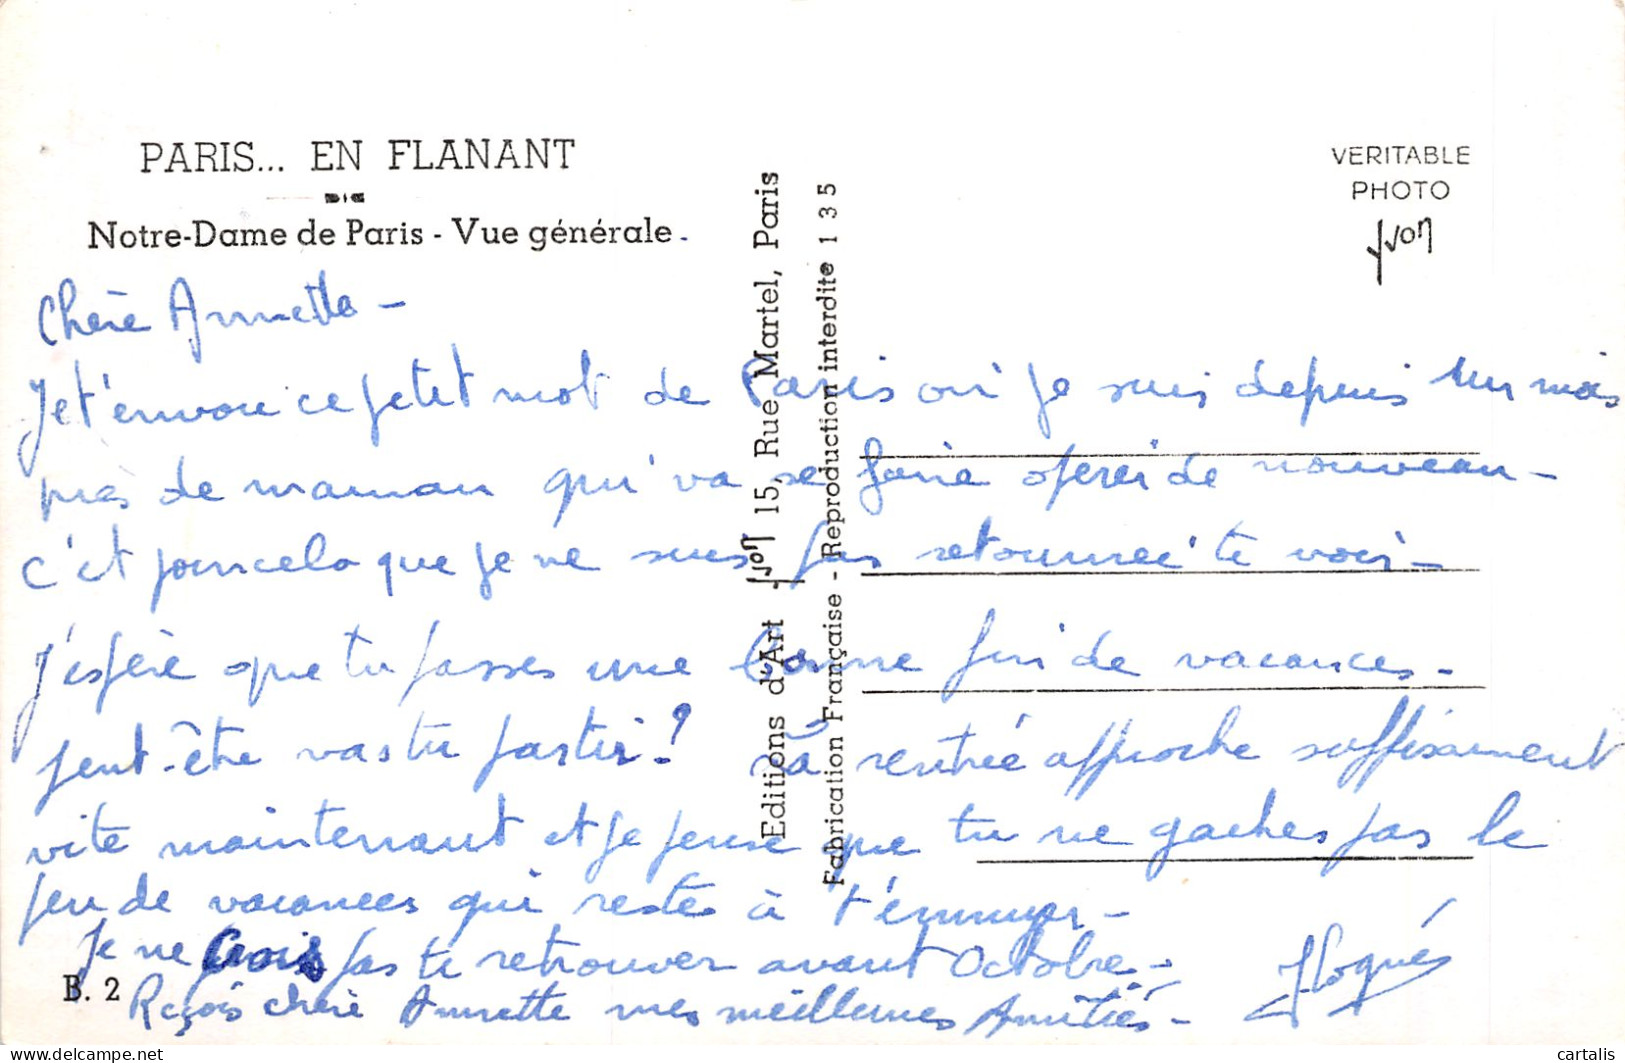 PARIS... EN FLANANT
Notre-Dame de Paris - Vue générale.
VERITABLE
PHOTO
yvon
Editions d'Art yvon 15, Rue Martel, Paris
Fabrication Française - Reproduction interdite 135
Chère Annette -
Je t'envoie ce petit mot de Paris où je suis depuis un mois
près de maman qui va se faire opérer de nouveau -
c'et pour cela que je ne suis pas retournée te voir -
j'espère que tu passes une bonne fin de vacances -
peut-être vas tu partir ? la rentrée approche suffisamment
vite maintenant et je pense que tu ne gaches pas le
peu de vacances qui reste à t'ennuyer -
Je ne crois pas te retrouver avant Octobre -
B. 2
Reçois chère Annette mes meilleures Amitiés -